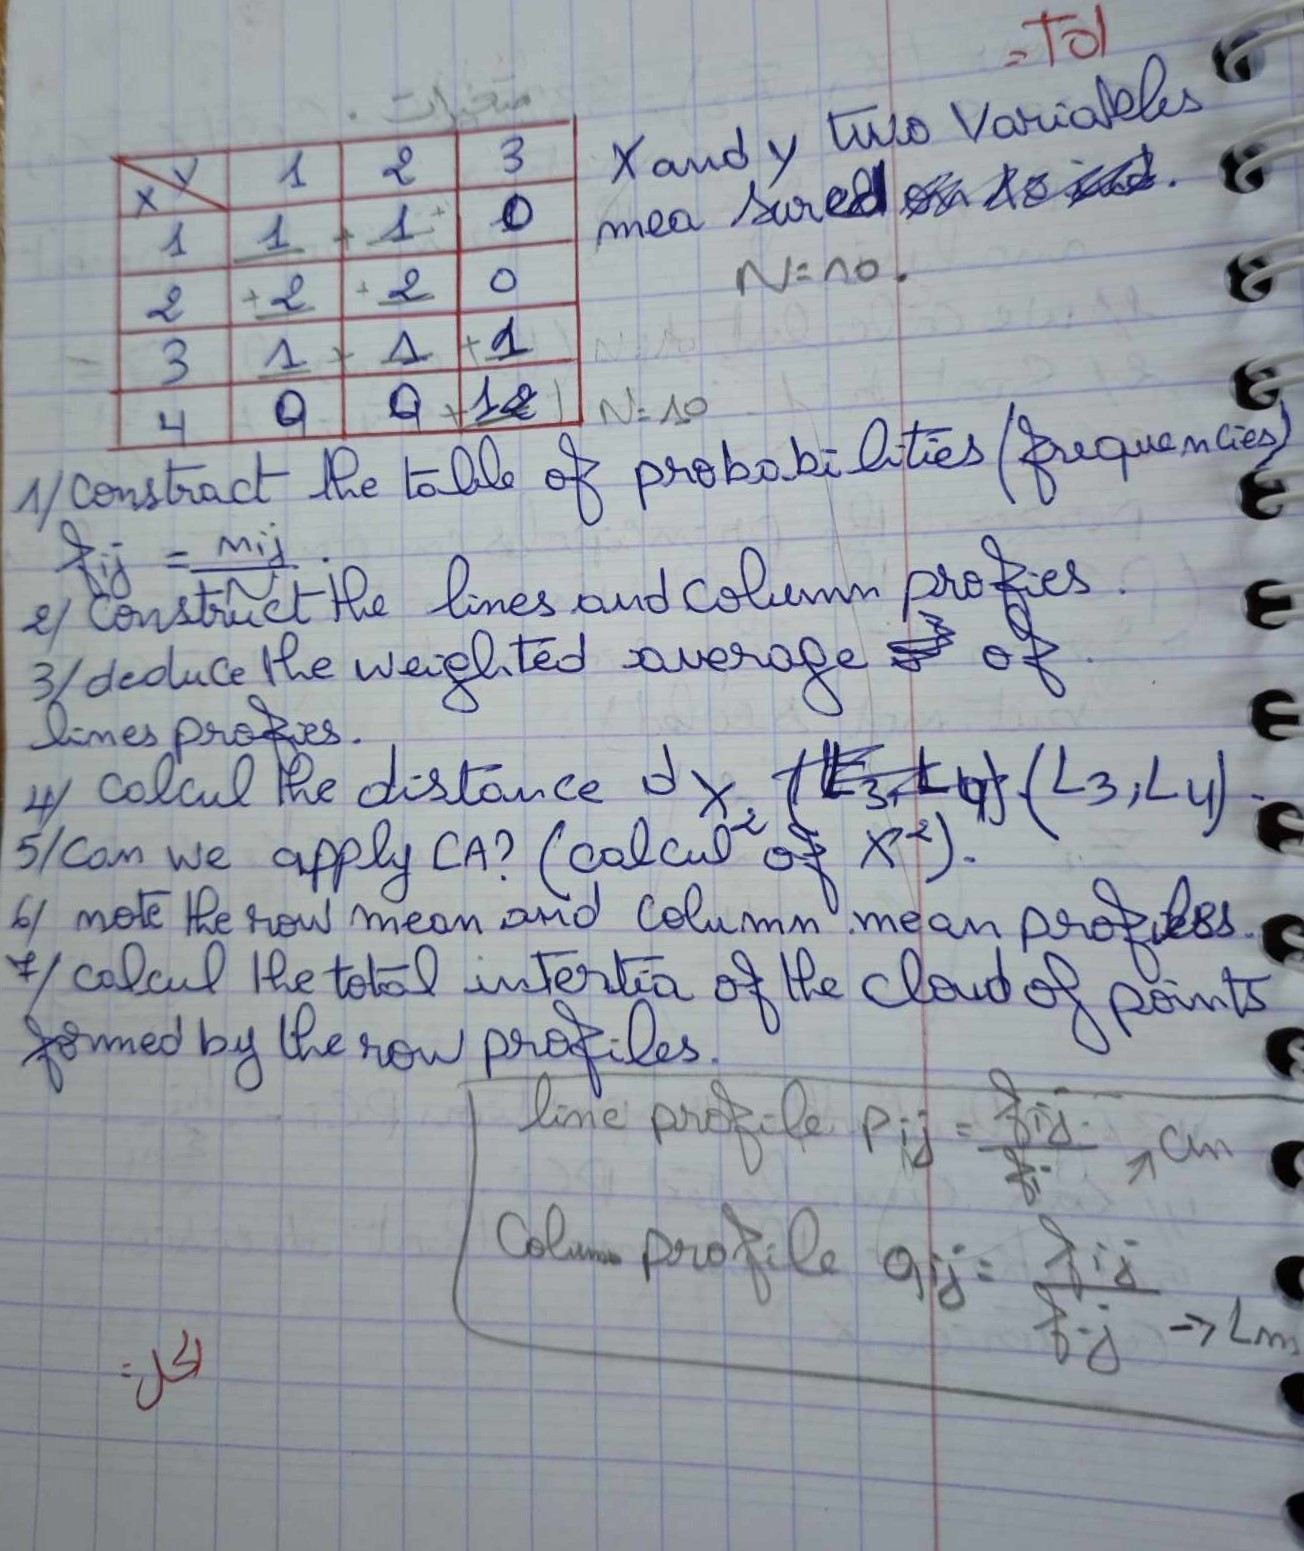 = Tol
متغيرات .
X Y 1 2 3
1 1 + 1 + 0
2 + 2 + 2 0
3 1 + 1 + 1
4 0 0 + 1
X and y two Variables
mea sured
N=10.
N=10
1/ constract the table of probabilities (frequencies)
fij = nij / N .
2/ construct the lines and column profies.
3/ deduce the weighted average of
lines profies.
4/ calcul the distance dX² (L3, L4).
5/ Can we apply CA? (calcul of X²).
6/ note the row mean and column mean profiles.
7/ calcul the total intertia of the cloud of points
formed by the row profiles.
line profile Pij = fij / fi → Cm
Column profile qij = fij / f.j → Lm
الحل =